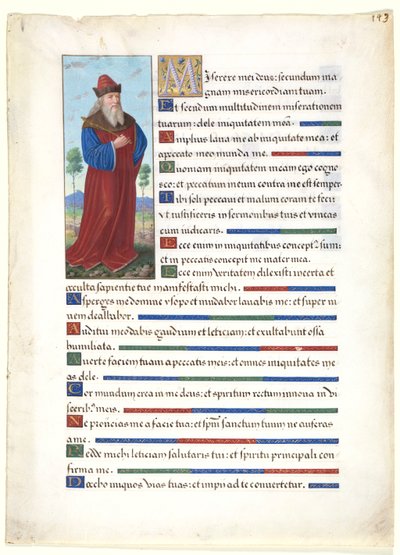 193
Miserere mei deus: secundum ma
gnam misericordiam tuam.
Et secundum multitudinem miserationem
tuarum: dele iniquitatem meā.
Amplius lava me ab iniquitate mea: et
a peccato meo munda me.
Quoniam iniquitatem meam ego cogno
sco: et peccatum meum contra me est semper.
Tibi soli peccavi et malum coram te feci:
vt iustificeris in sermonibus tuis et vincas
cum iudicaris.
Ecce enim in iniquitatibus conceptꝰ sum:
et in peccatis concepit me mater mea.
Ecce enim veritatem dilexisti incerta et
occulta sapientie tue manifestasti michi.
Asperges me domine ysopo et mundabor lavabis me: et super ni
uem dealbabor.
Auditui meo dabis gaudium et leticiam: et exultabunt ossa
humiliata.
Averte faciem tuam a peccatis meis: et omnes iniquitates me
as dele.
Cor mundum crea in me deus: et spiritum rectum innova in vi
sceribꝰ meis.
Ne proiicias me a facie tua: et spm̄ sanctum tuum ne auferas
a me.
Redde michi leticiam salutaris tui: et spiritu principali con
firma me.
Docebo iniquos vias tuas: et impii ad te convertetur.